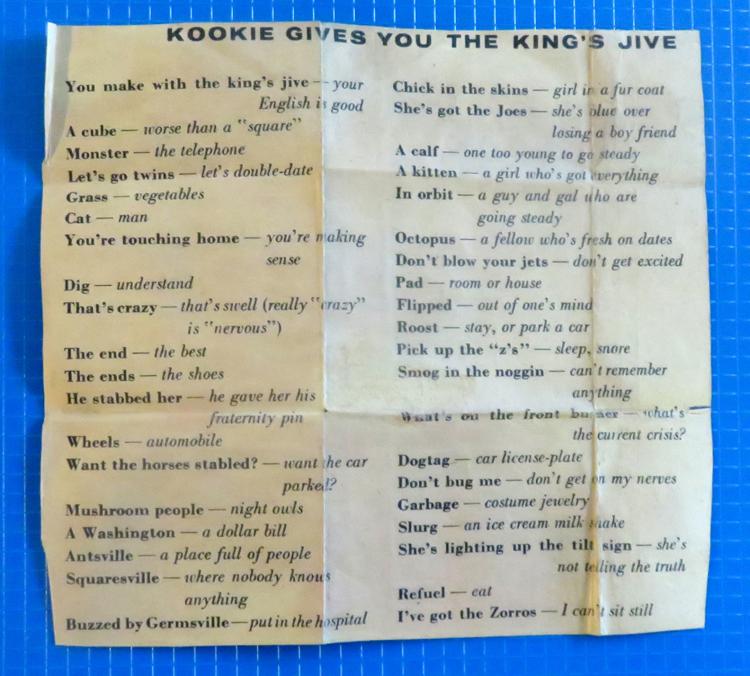 KOOKIE GIVES YOU THE KING'S JIVE
You make with the king's jive — your
English is good
A cube — worse than a "square"
Monster — the telephone
Let's go twins — let's double-date
Grass — vegetables
Cat — man
You're touching home — you're making
sense
Dig — understand
That's crazy — that's swell (really "crazy"
is "nervous")
The end — the best
The ends — the shoes
He stabbed her — he gave her his
fraternity pin
Wheels — automobile
Want the horses stabled? — want the car
parked?
Mushroom people — night owls
A Washington — a dollar bill
Antsville — a place full of people
Squaresville — where nobody knows
anything
Buzzed by Germsville — put in the hospital
Chick in the skins — girl in a fur coat
She's got the Joes — she's blue over
losing a boy friend
A calf — one too young to go steady
A kitten — a girl who's got everything
In orbit — a guy and gal who are
going steady
Octopus — a fellow who's fresh on dates
Don't blow your jets — don't get excited
Pad — room or house
Flipped — out of one's mind
Roost — stay, or park a car
Pick up the "z's" — sleep, snore
Smog in the noggin — can't remember
anything
What's on the front burner — what's
the current crisis?
Dogtag — car license-plate
Don't bug me — don't get on my nerves
Garbage — costume jewelry
Slurg — an ice cream milk shake
She's lighting up the tilt sign — she's
not telling the truth
Refuel — eat
I've got the Zorros — I can't sit still